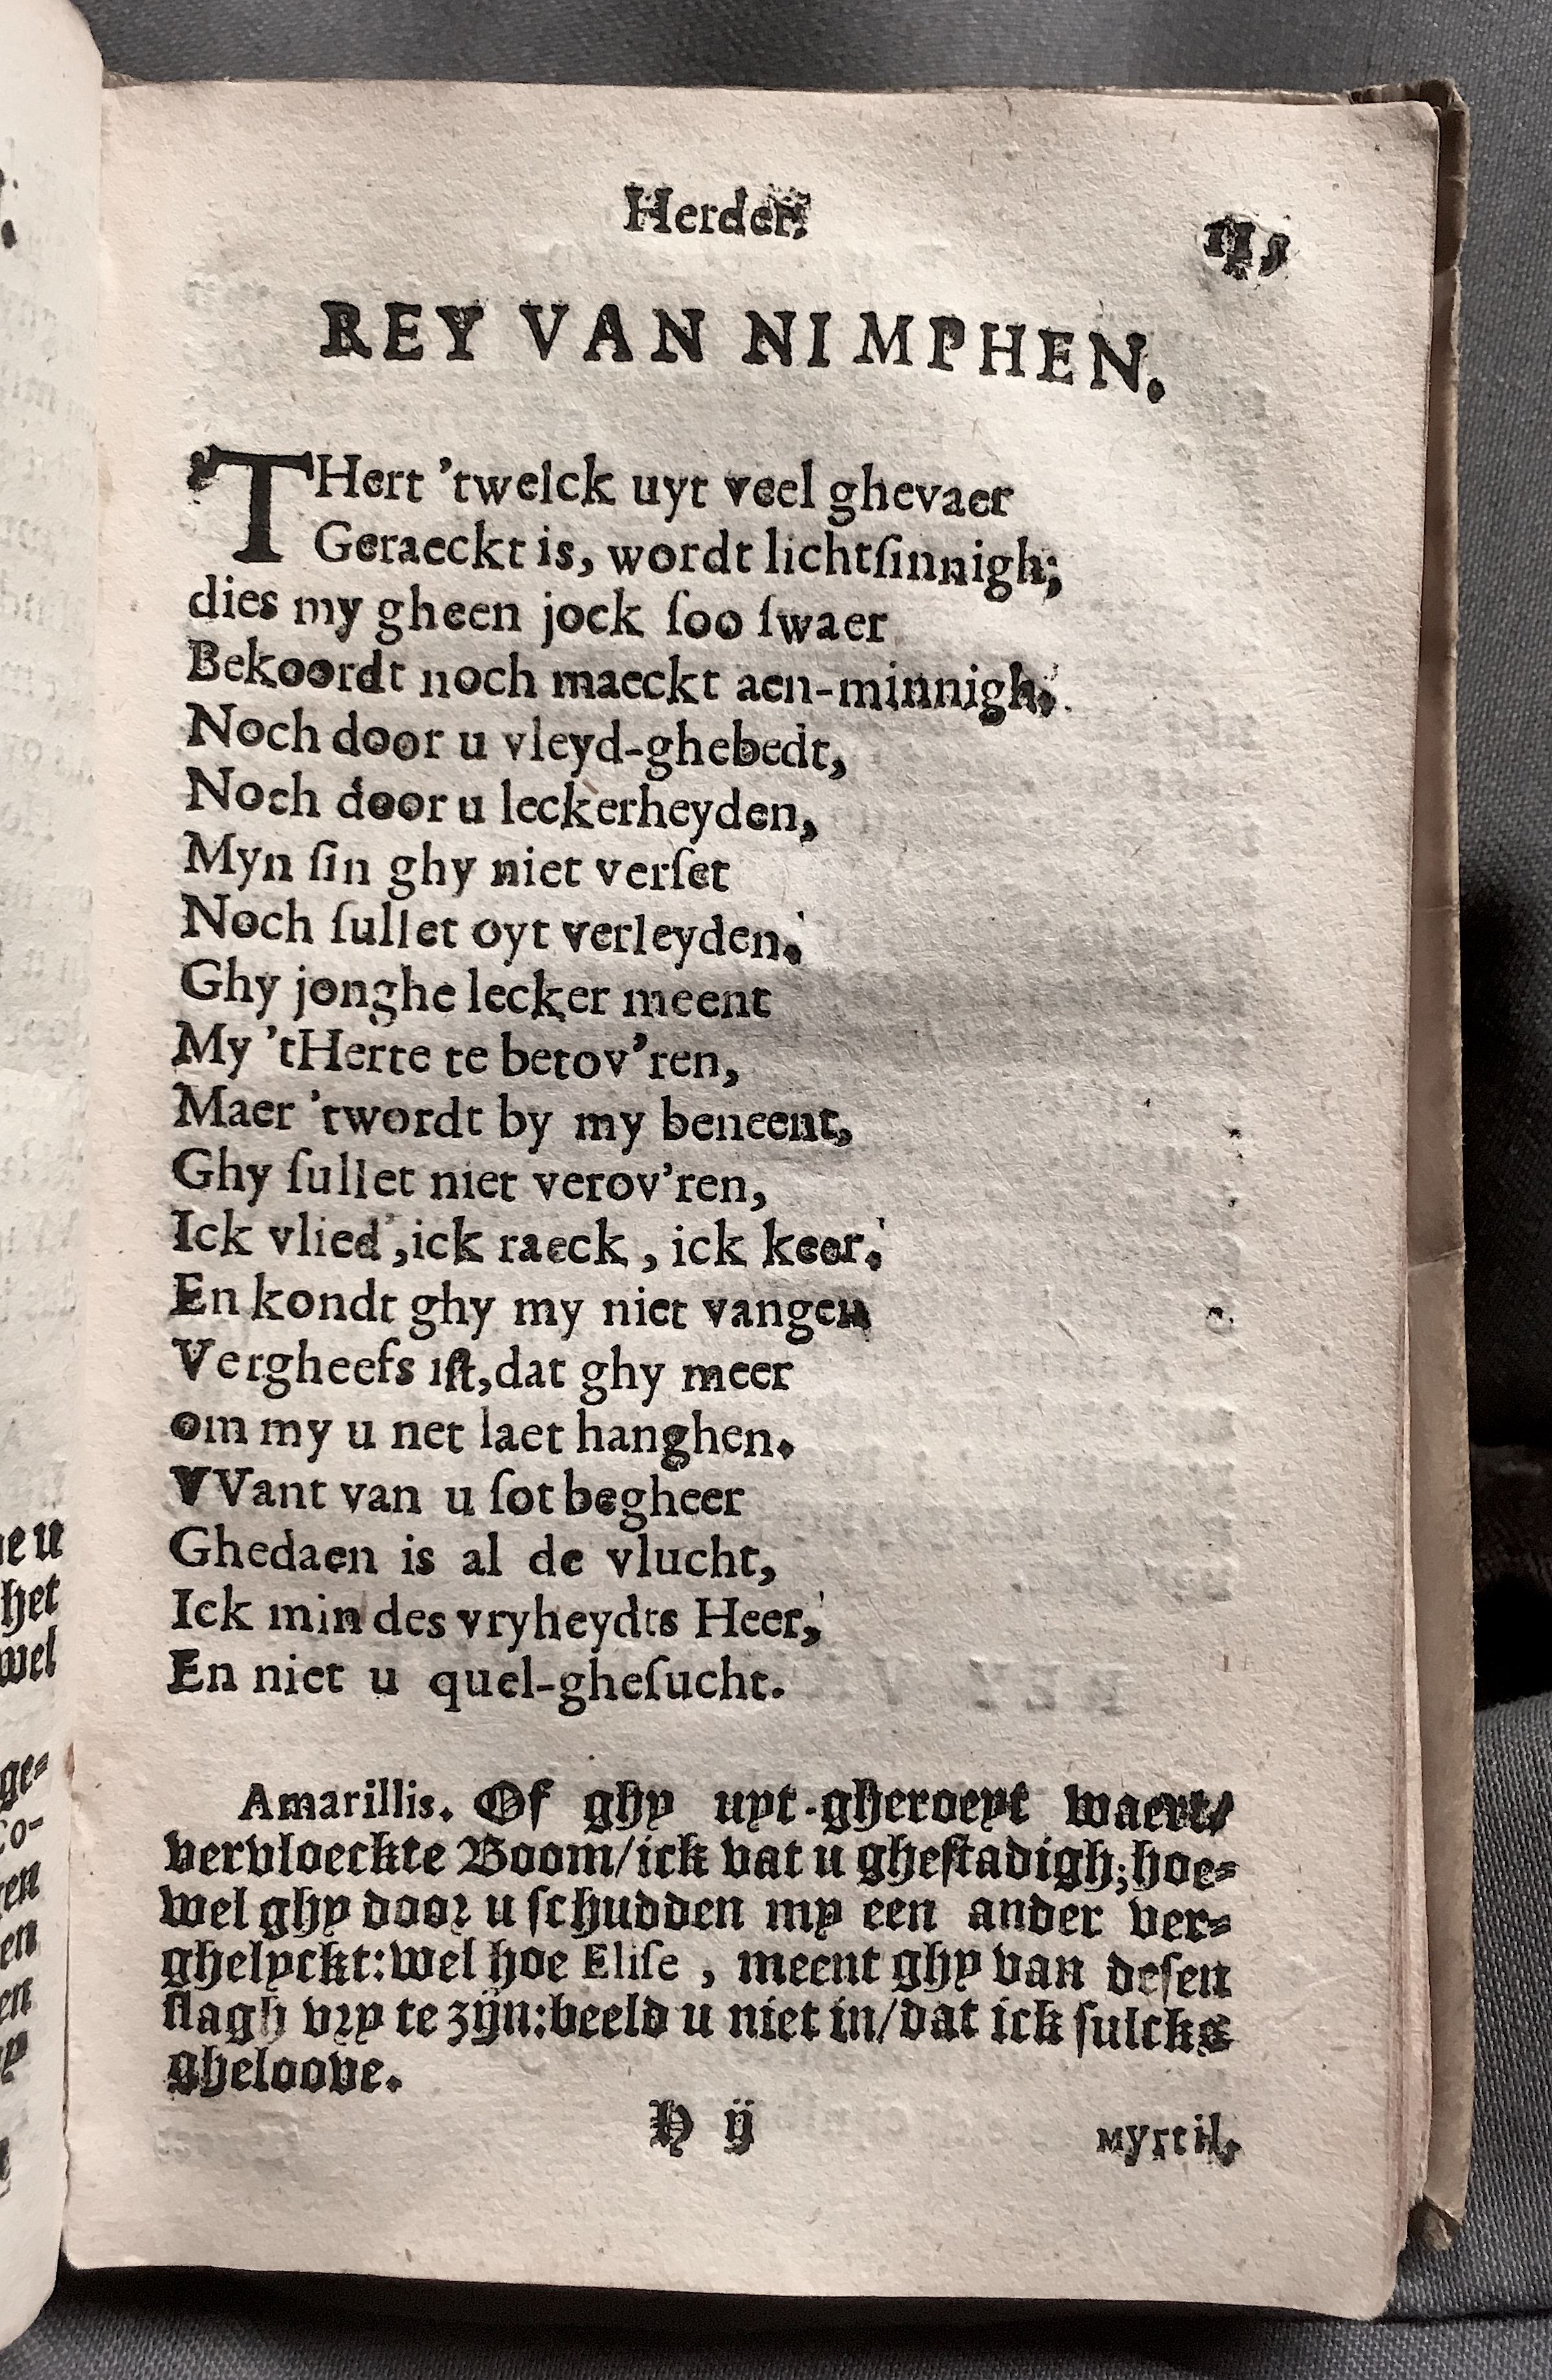 Herder.
115
REY VAN NIMPHEN.
'THert 'twelck uyt veel ghevaer
Geraeckt is, wordt lichtſinnigh;
dies my gheen jock ſoo ſwaer
Bekoordt noch maeckt aen-minnigh.
Noch door u vleyd-ghebedt,
Noch door u leckerheyden,
Myn ſin ghy niet verſet
Noch ſullet oyt verleyden.
Ghy jonghe lecker meent
My 'tHerte te betov'ren,
Maer 'twordt by my beneent,
Ghy ſullet niet verov'ren,
Ick vlied', ick raeck, ick keer.
En kondt ghy my niet vangen
Vergheefs iſt, dat ghy meer
om my u net laet hanghen.
VVant van u ſot begheer
Ghedaen is al de vlucht,
Ick min des vryheydts Heer,
En niet u quel-gheſucht.
Amarillis. Of ghy uyt-gheroeyt waert/
vervloeckte Boom/ick vat u gheſtadigh; hoe-
wel ghy door u ſchudden my een ander ver-
ghelyckt: wel hoe Eliſe, meent ghy van deſen
ſlagh vry te zijn: beeld u niet in/dat ick ſulcks
gheloove.
H ij
Myrtil.
ne u
het
wel
ge-
co-
en
en
en